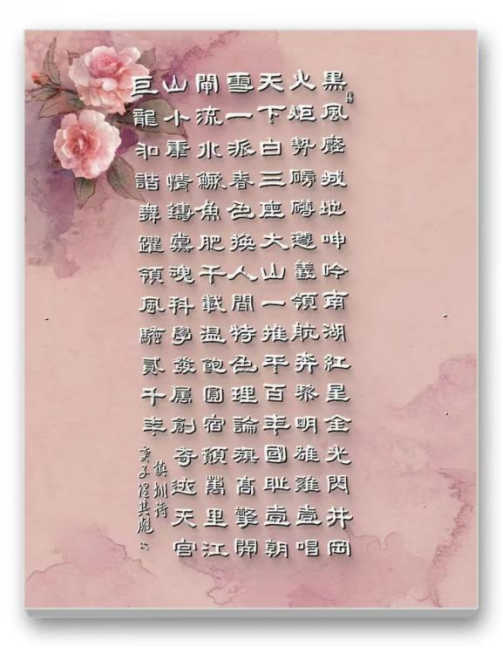 黑風城地呻吟南湖紅星金光閃井岡
火炬勢磅礴遵義領航奔黎明雄雞壹唱
天下白三座大山一推平百年國恥壹朝
雪一派春色換人間特色理論旗高擎開
閘流水鱖魚肥千載温飽圓宿願萬里江
山小康情鑄黨魂科學發展創奇迹天宮
巨龍和諧舞躍領風騷貳千年
圳詩
庚子